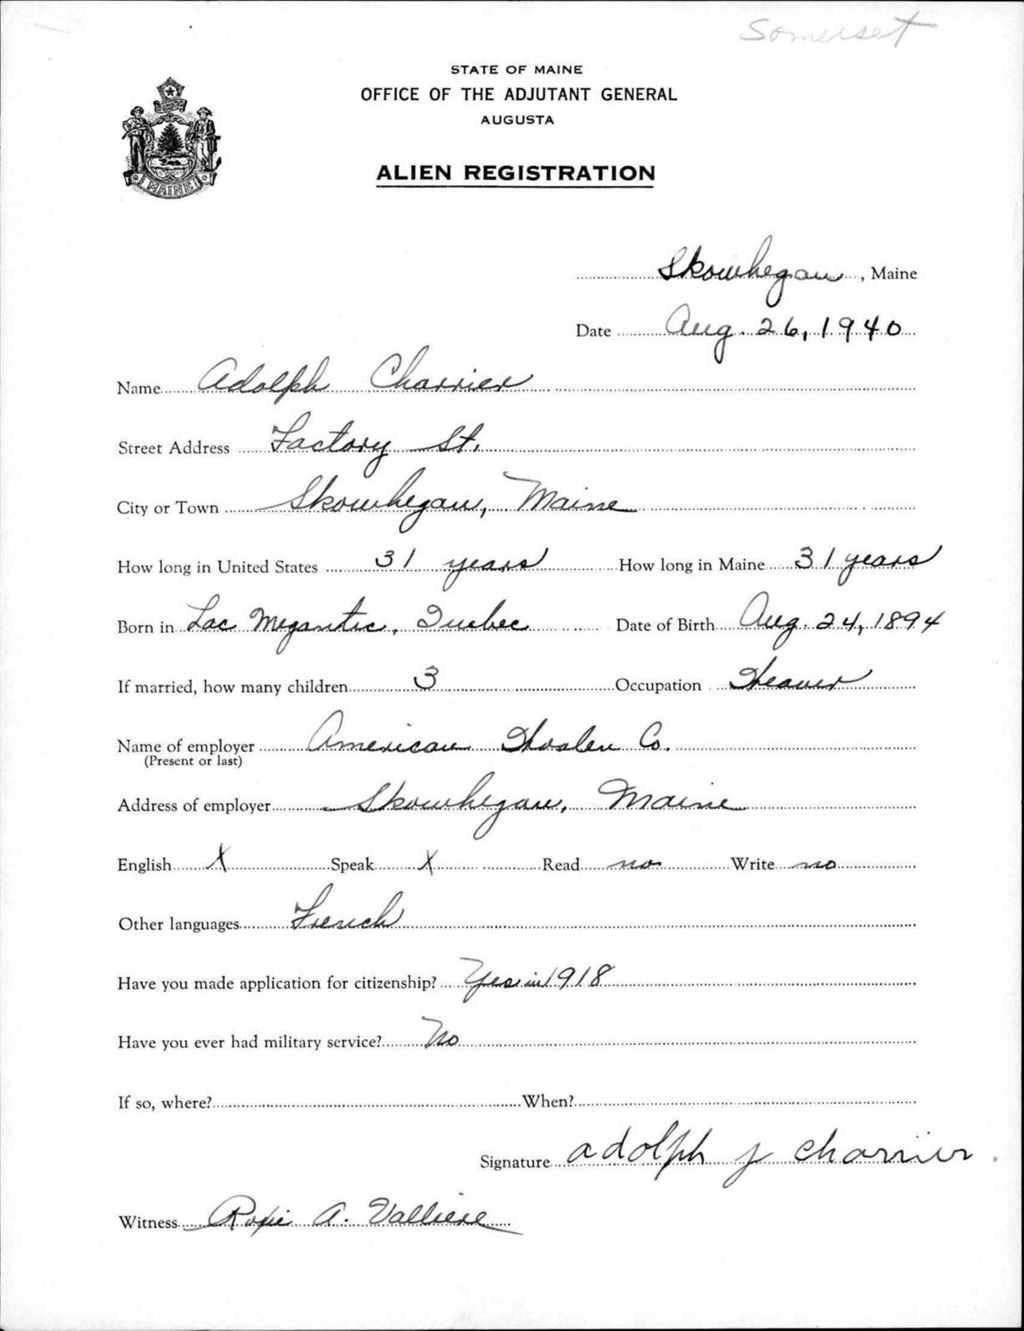 Somerset
STATE OF MAINE
OFFICE OF THE ADJUTANT GENERAL
AUGUSTA
ALIEN REGISTRATION
MAINE
Skowhegan, Maine
Date Aug. 26, 1940
Name Adolph Charrier
Street Address Factory St.
City or Town Skowhegan, Maine
How long in United States 31 years How long in Maine 31 years
Born in Lac Megantic, Quebec Date of Birth Aug. 24, 1894
If married, how many children 3 Occupation Weaver
Name of employer American Woolen Co.
(Present or last)
Address of employer Skowhegan, Maine
English X Speak X Read no Write no
Other languages French
Have you made application for citizenship? Yes in 1918
Have you ever had military service? No
If so, where? When?
Signature adolph j charrier
Witness Roxie A. Valliere